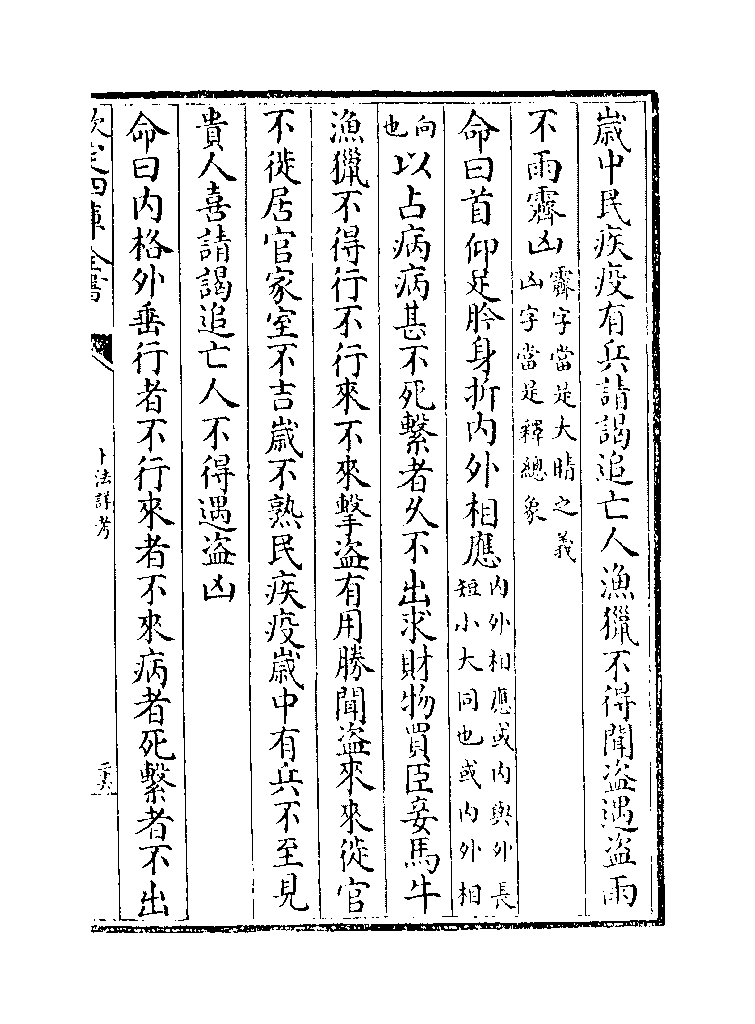 歳中民疾疫有兵請謁追亡人漁獵不得聞盗遇盗雨
不雨霽凶霽字當是大晴之義凶字當是釋總象
命曰首仰足肣身折内外相應内外相應或内與外長短小大同也或内外相
向也以占病病甚不死繫者久不出求財物買臣妾馬牛
漁獵不得行不行來不來擊盗有用勝聞盗來來徙官
不徙居官家室不吉歳不熟民疾疫歳中有兵不至見
貴人喜請謁追亡人不得遇盗凶
命曰内格外垂行者不行來者不來病者死繫者不出
欽定四庫全書
卜法詳考
二十六